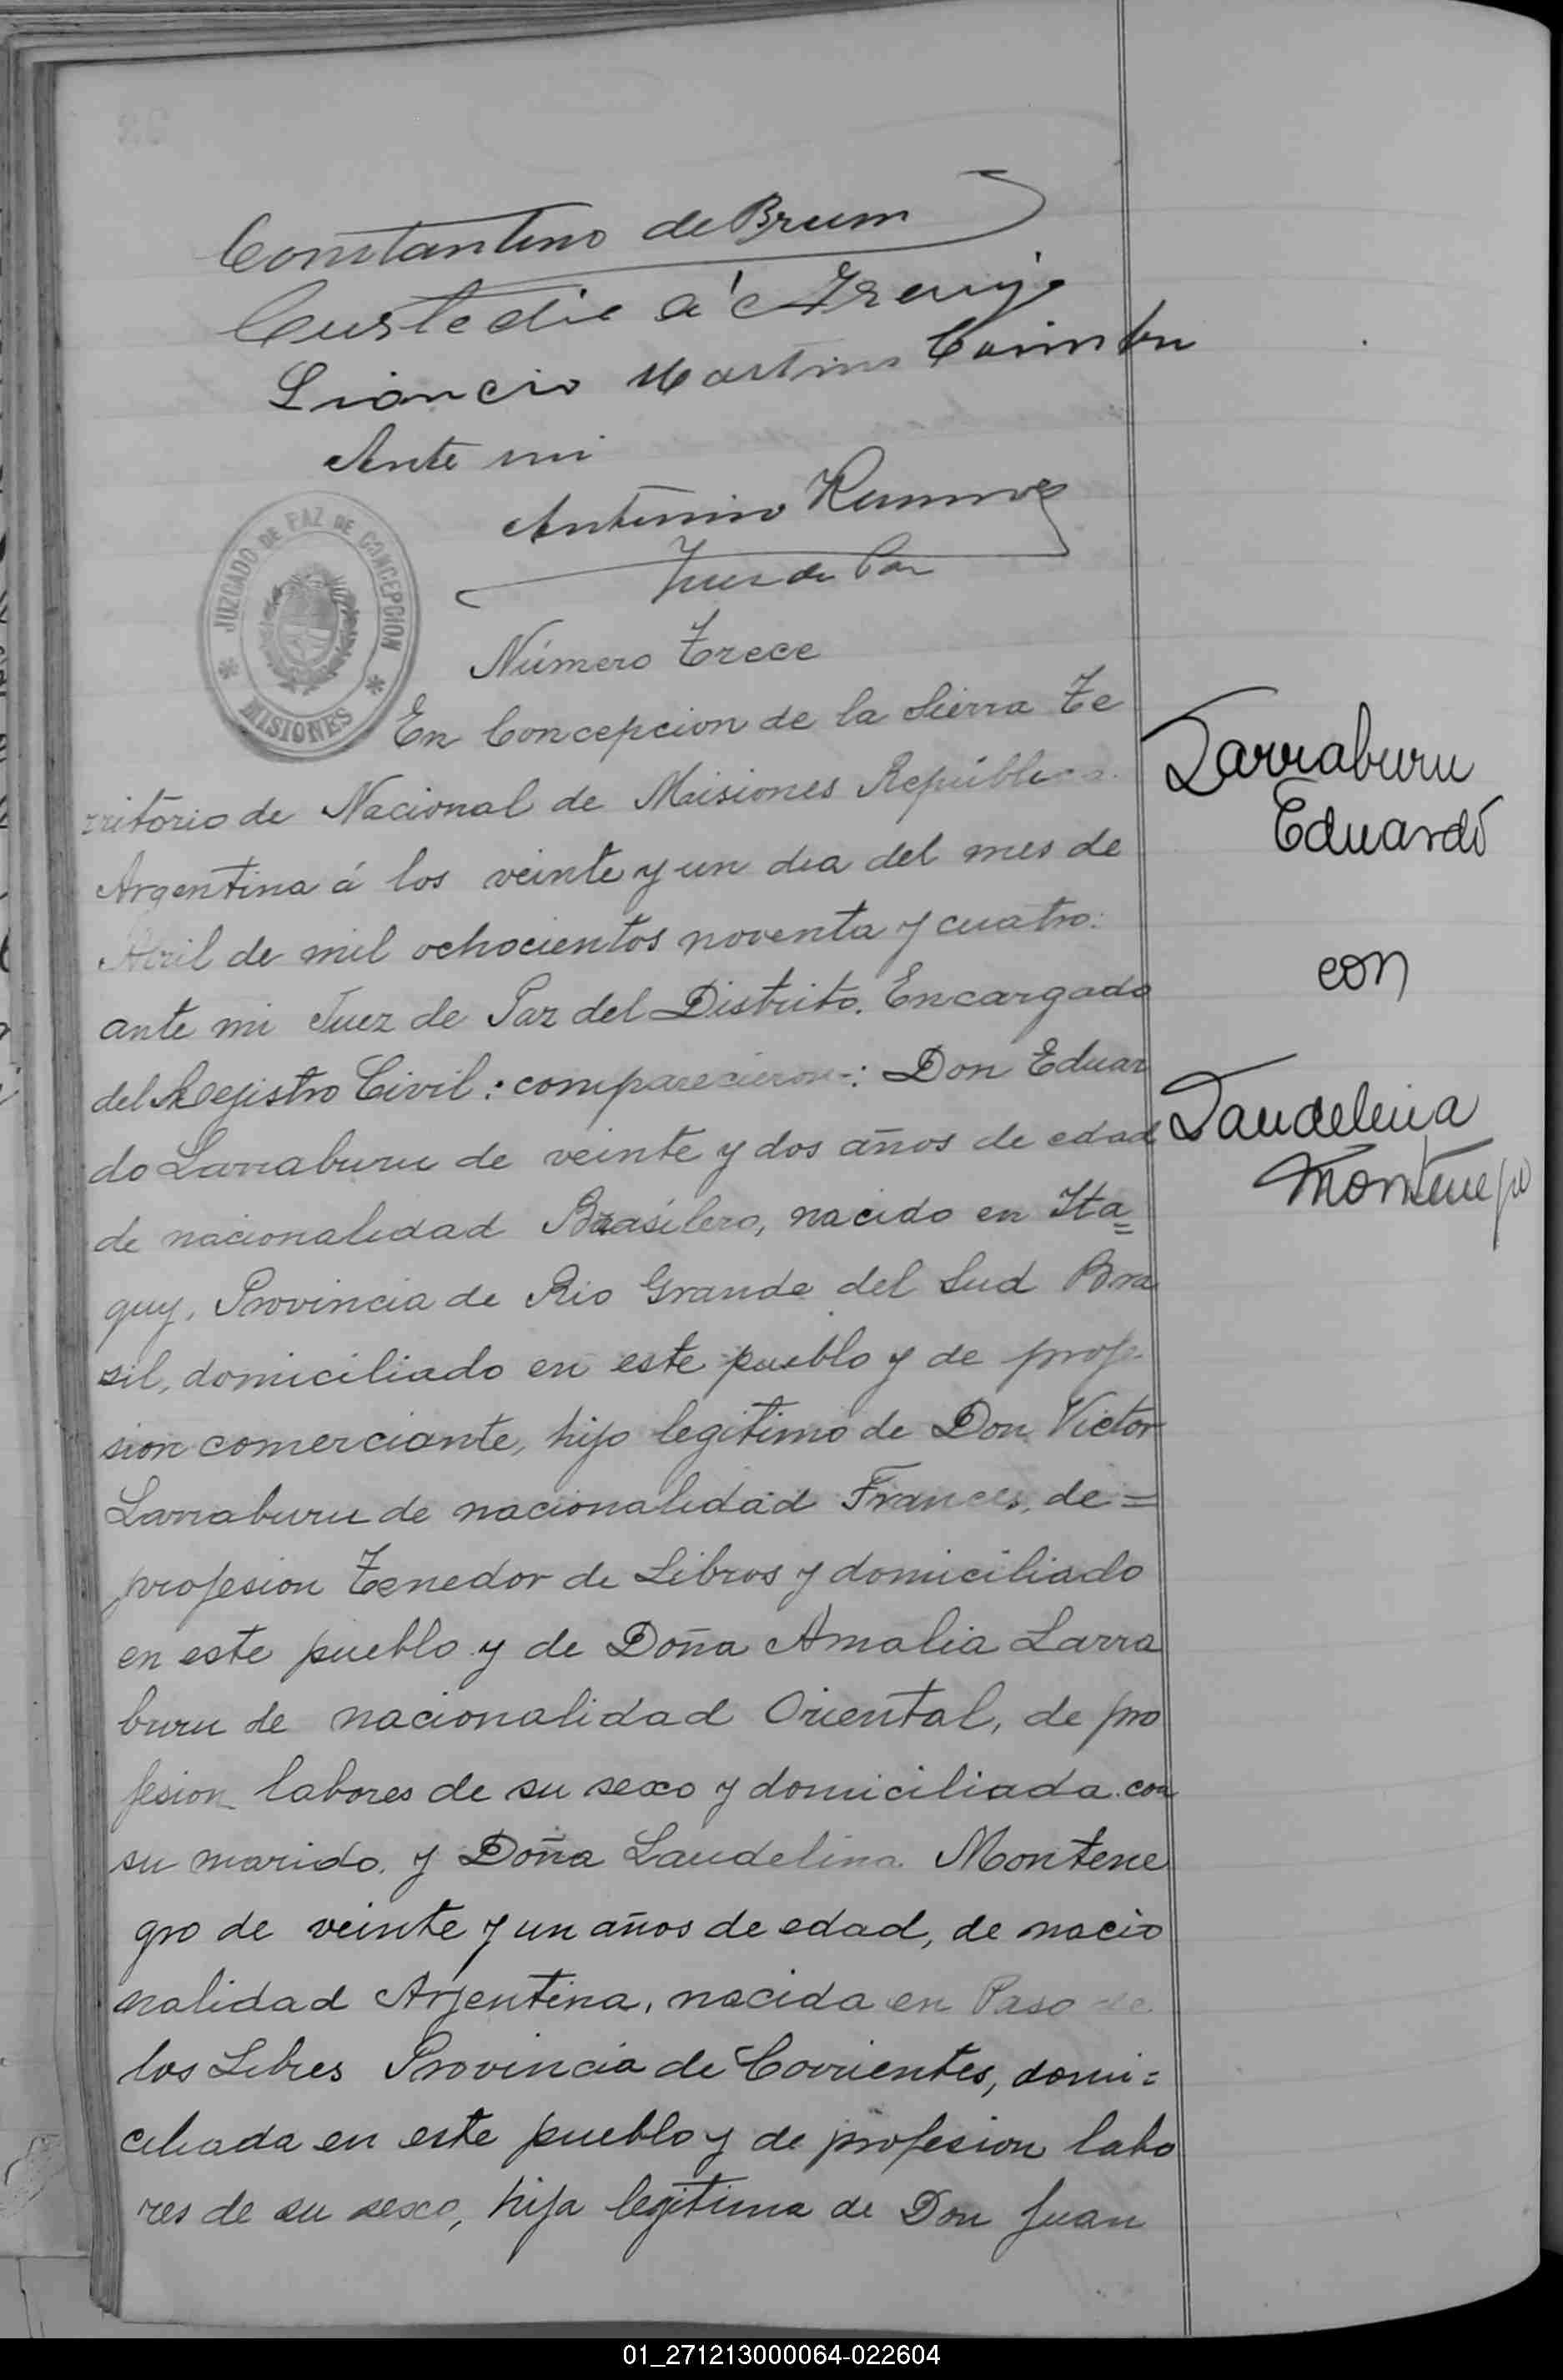 Constantino de Brum
Custodio a' c Araujo
Liancio Martins Coimbra
Ante mi
Antonino Ramirez
Juez de Paz
JUZGADO DE PAZ DE CONCEPCION
MISIONES
Número Trece
En Concepcion de la Sierra Te
rritorio de Nacional de Misiones República
Argentina á los veinte y un dia del mes de
Abril de mil ochocientos noventa y cuatro:
ante mi Juez de Paz del Distrito. Encargado
del Registro Civil: comparecieron: Don Eduar
do Larraburu de veinte y dos años de edad
de nacionalidad Brasilero, nacido en Ita=
quy, Provincia de Rio Grande del Sud Bra
sil, domiciliado en este pueblo y de profe-
sion comerciante, hijo legitimo de Don Victor
Larraburu de nacionalidad Frances, de=
profesion Tenedor de Libros y domiciliado
en este pueblo y de Doña Amalia Larra
buru de nacionalidad Oriental, de pro
fesion labores de su sexo y domiciliada con
su marido. y Doña Laudelina Montene
gro de veinte y un años de edad, de nacio
nalidad Argentina, nacida en Paso de
los Libres Provincia de Corrientes, domi=
ciliada en este pueblo y de profesion labo
res de su sexo, hija legitima de Don Juan
Larraburu
Eduardo
con
Laudelina
Montenegro
01_271213000064-022604